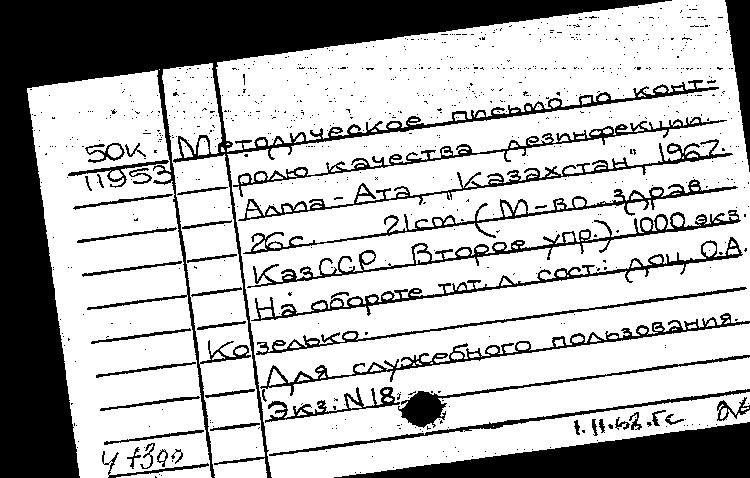 50к. Методическое письмо по конт-
11953 ролю качества дезинфекции.
Алма-Ата, "Казахстан", 1967.
26с. 21см. (М-во здрав.
КазССР. Второе упр.). 1000 экз.
На обороте тит. л. сост.: доц. О.А.
Козелько.
Для служебного пользования.
Экз: N18.